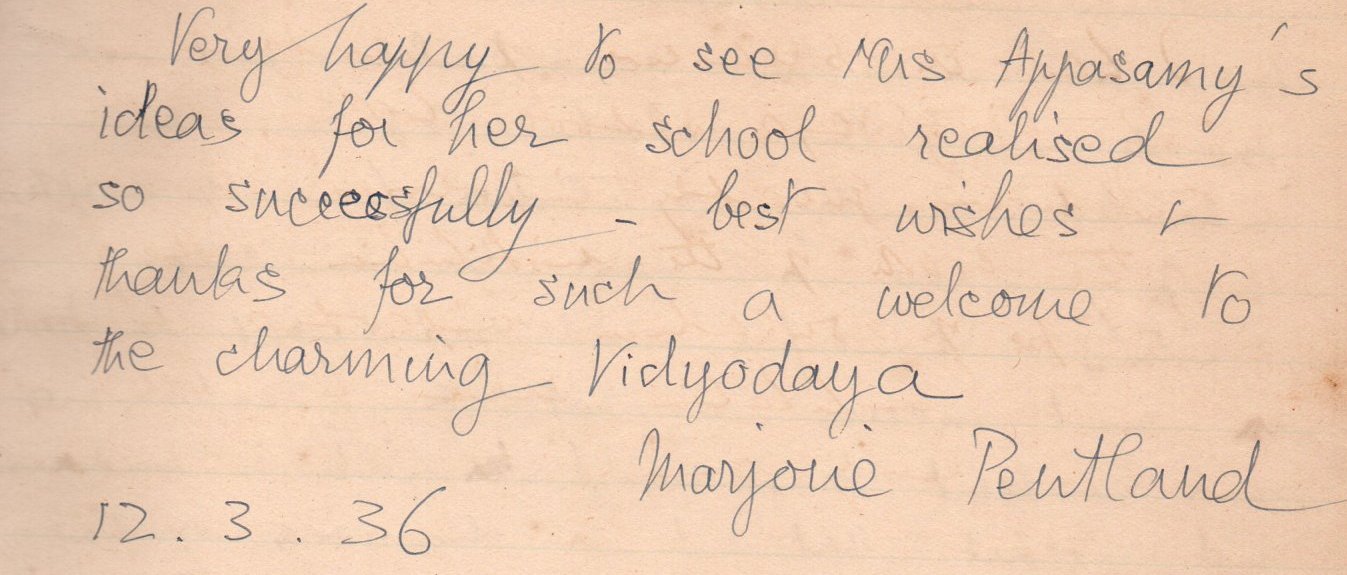 Very happy to see Mrs Appasamy's
ideas for her school realised
so successfully - best wishes &
thanks for such a welcome to
the charming Vidyodaya
Marjorie Pentland
12.3.36